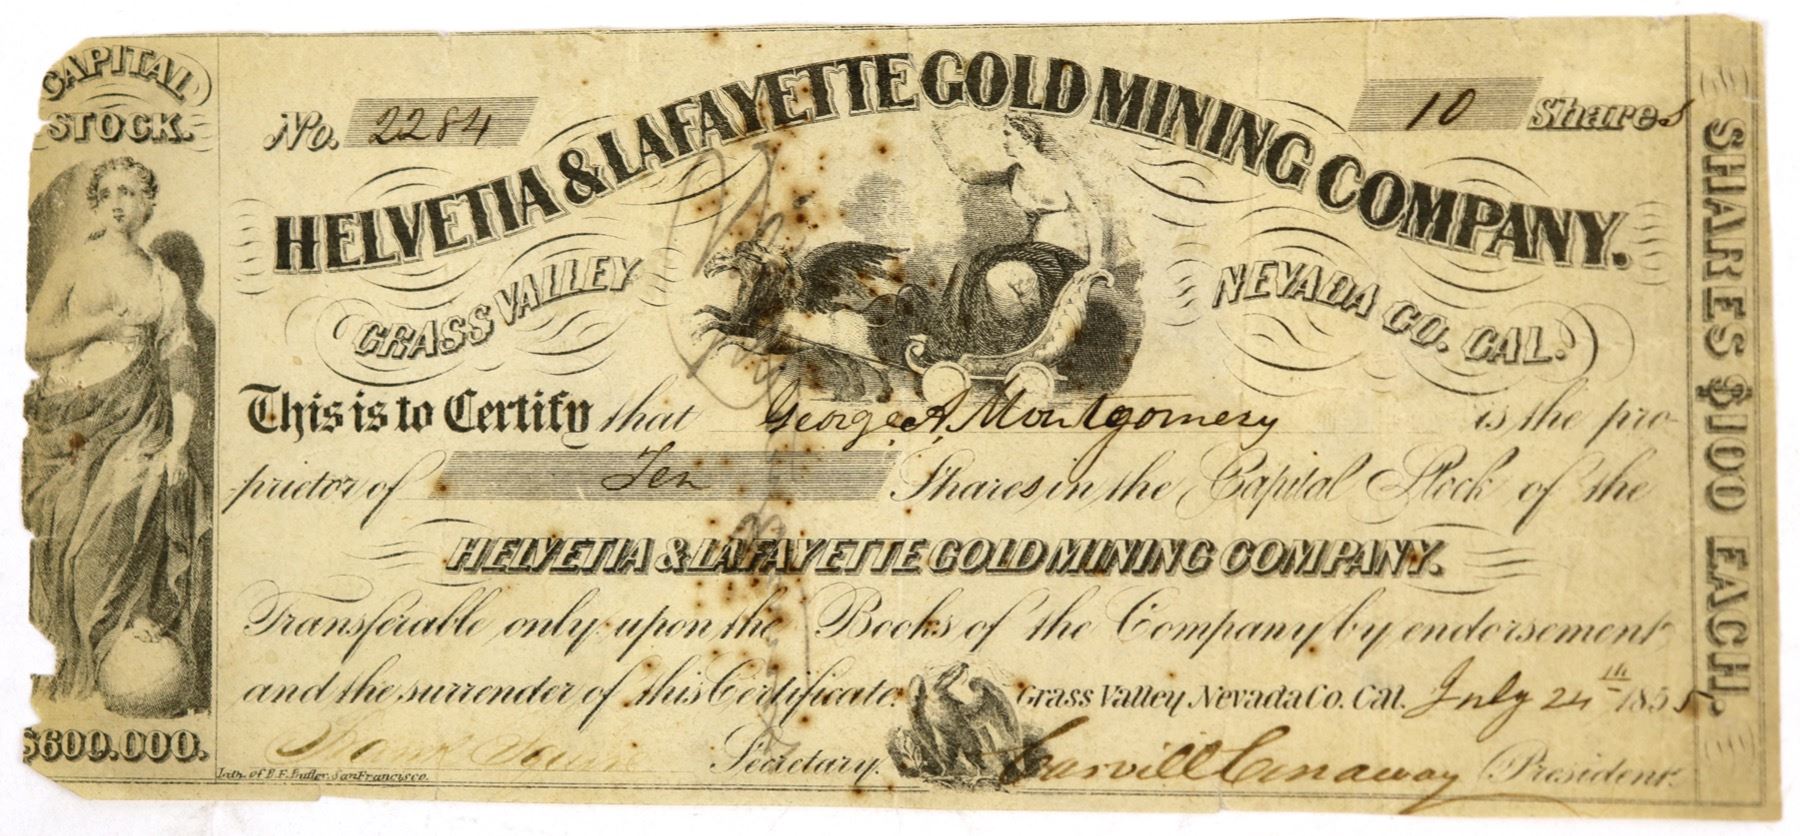 CAPITAL
STOCK.
No. 2284
10 Shares
HELVETIA & LAFAYETTE GOLD MINING COMPANY.
GRASS VALLEY
NEVADA CO. CAL.
This is to Certify that George A. Montgomery is the pro-
prietor of Ten Shares in the Capital Stock of the
HELVETIA & LAFAYETTE GOLD MINING COMPANY.
Transferable only upon the Books of the Company by endorsement
and the surrender of this Certificate.
Grass Valley, Nevada Co. Cal. July 24th 1855
$600.000.
Frank Secretary.
Conaway President.
Lith. of B.F. Butler, San Francisco.
SHARES $100 EACH.